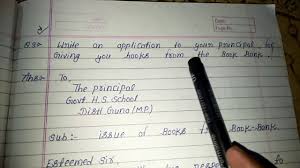 Date:
Page No.
Q3= Write an application to your principal for
Giving you books from the Book Bank.
Ans= To,
The principal
Govt. H.S. School
Distt Guna (M.P.)
Sub:- issue of Books from Book-Bank.
Esteemed Sir,